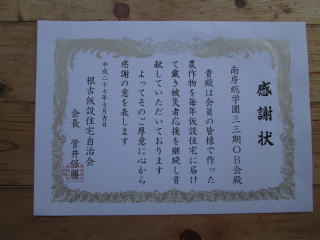 感謝状
南房総学園三三期OB会殿
貴殿は会員の皆様で作った
農作物を毎年仮設住宅に届け
て戴き被災者応援を継続し貢
献していただいております
よってそのご厚意に心から
感謝の意を表します
平成二十七年七月吉日
根古仮設住宅自治会
会長 菅井保勝